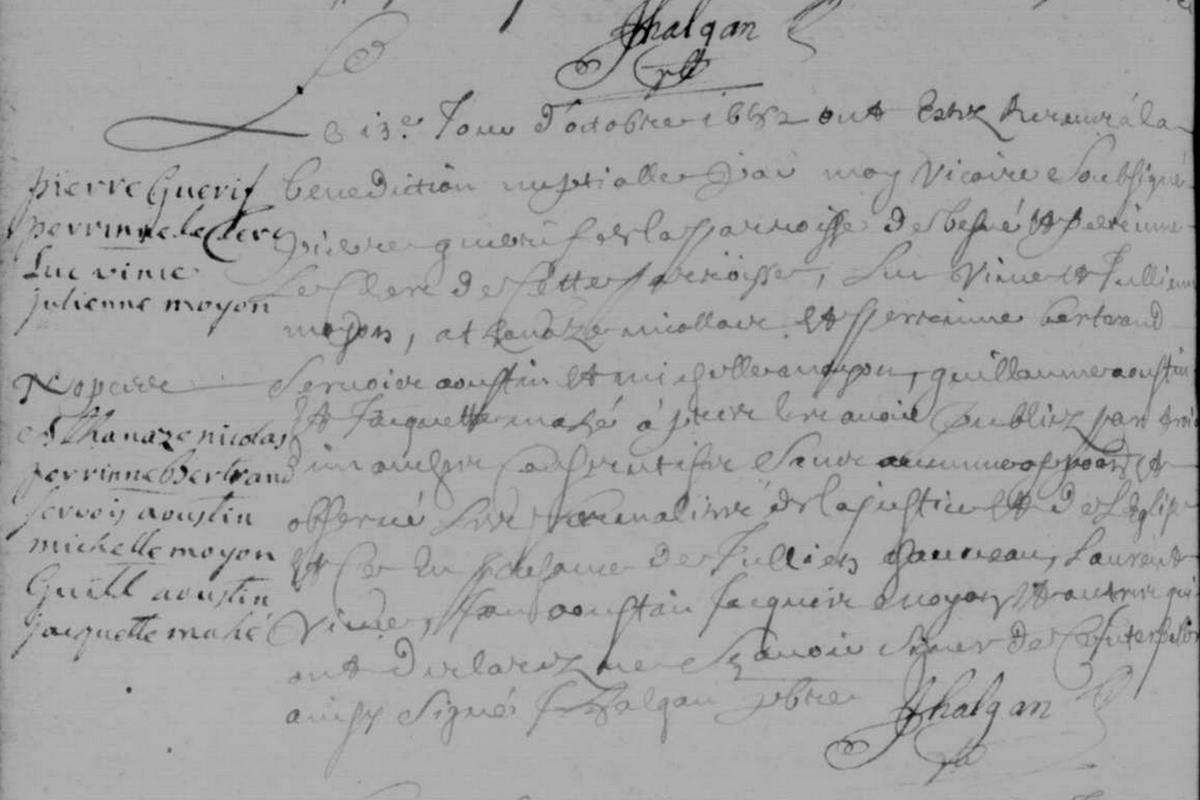 Jhalgan
Le 13e Jour d'octobre 1682 ont Estez a la
benediction nuptialle par moy Vicaire Soubsigné
pierre guerif de la parroisse de besné et perrinne
Le Clerc de Cette parroisse, Luc Vince et Jullienne
moyon, at nicollas et perrinne bertrand
Servoice aoustin et michelle moyon, guillaume aoustin
Et Jacquette mahé Publiez par trois
dimanches Consecutifs Sans aucunne et
observé les de la justice et de l'Eglise
Et Ce En presance de Jullien Laurent
Vince, Jan aoustin Jacques moyon Et autres qui
ont declarez ne Sçavoir Signer de Ce
ainsy Signé Jhalgan pbre
Jhalgan
pierre Guerif
perrinne le Clerc
Luc vince
julienne moyon
athanaze nicolas
perrinne Bertrand
servois aoustin
michelle moyon
Guill aoustin
jacquette mahé